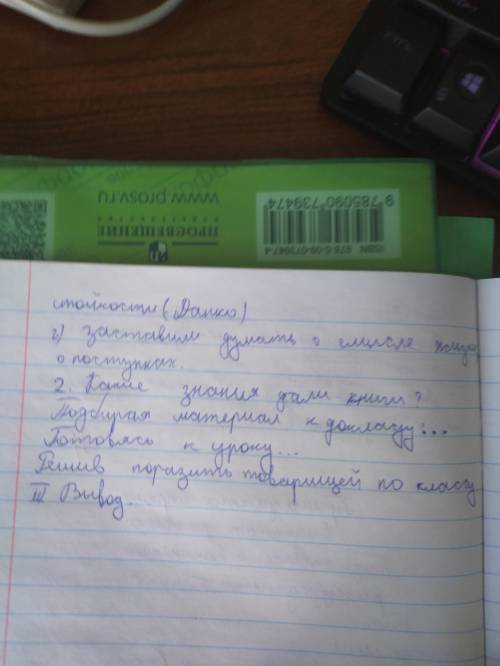 CTRL
www.prosv.ru
ПРОСВЕЩЕНИЕ
ИЗДАТЕЛЬСТВО
ISBN 978-5-09-073947-4
9 785090 739474
стойкости (Данко)
г) заставили думать о смысле жизни
о поступках.
2. Какие знания дали книги?
Подбирая материал к докладу...
Готовясь к уроку...
Решив поразить товарищей по классу
III Вывод.